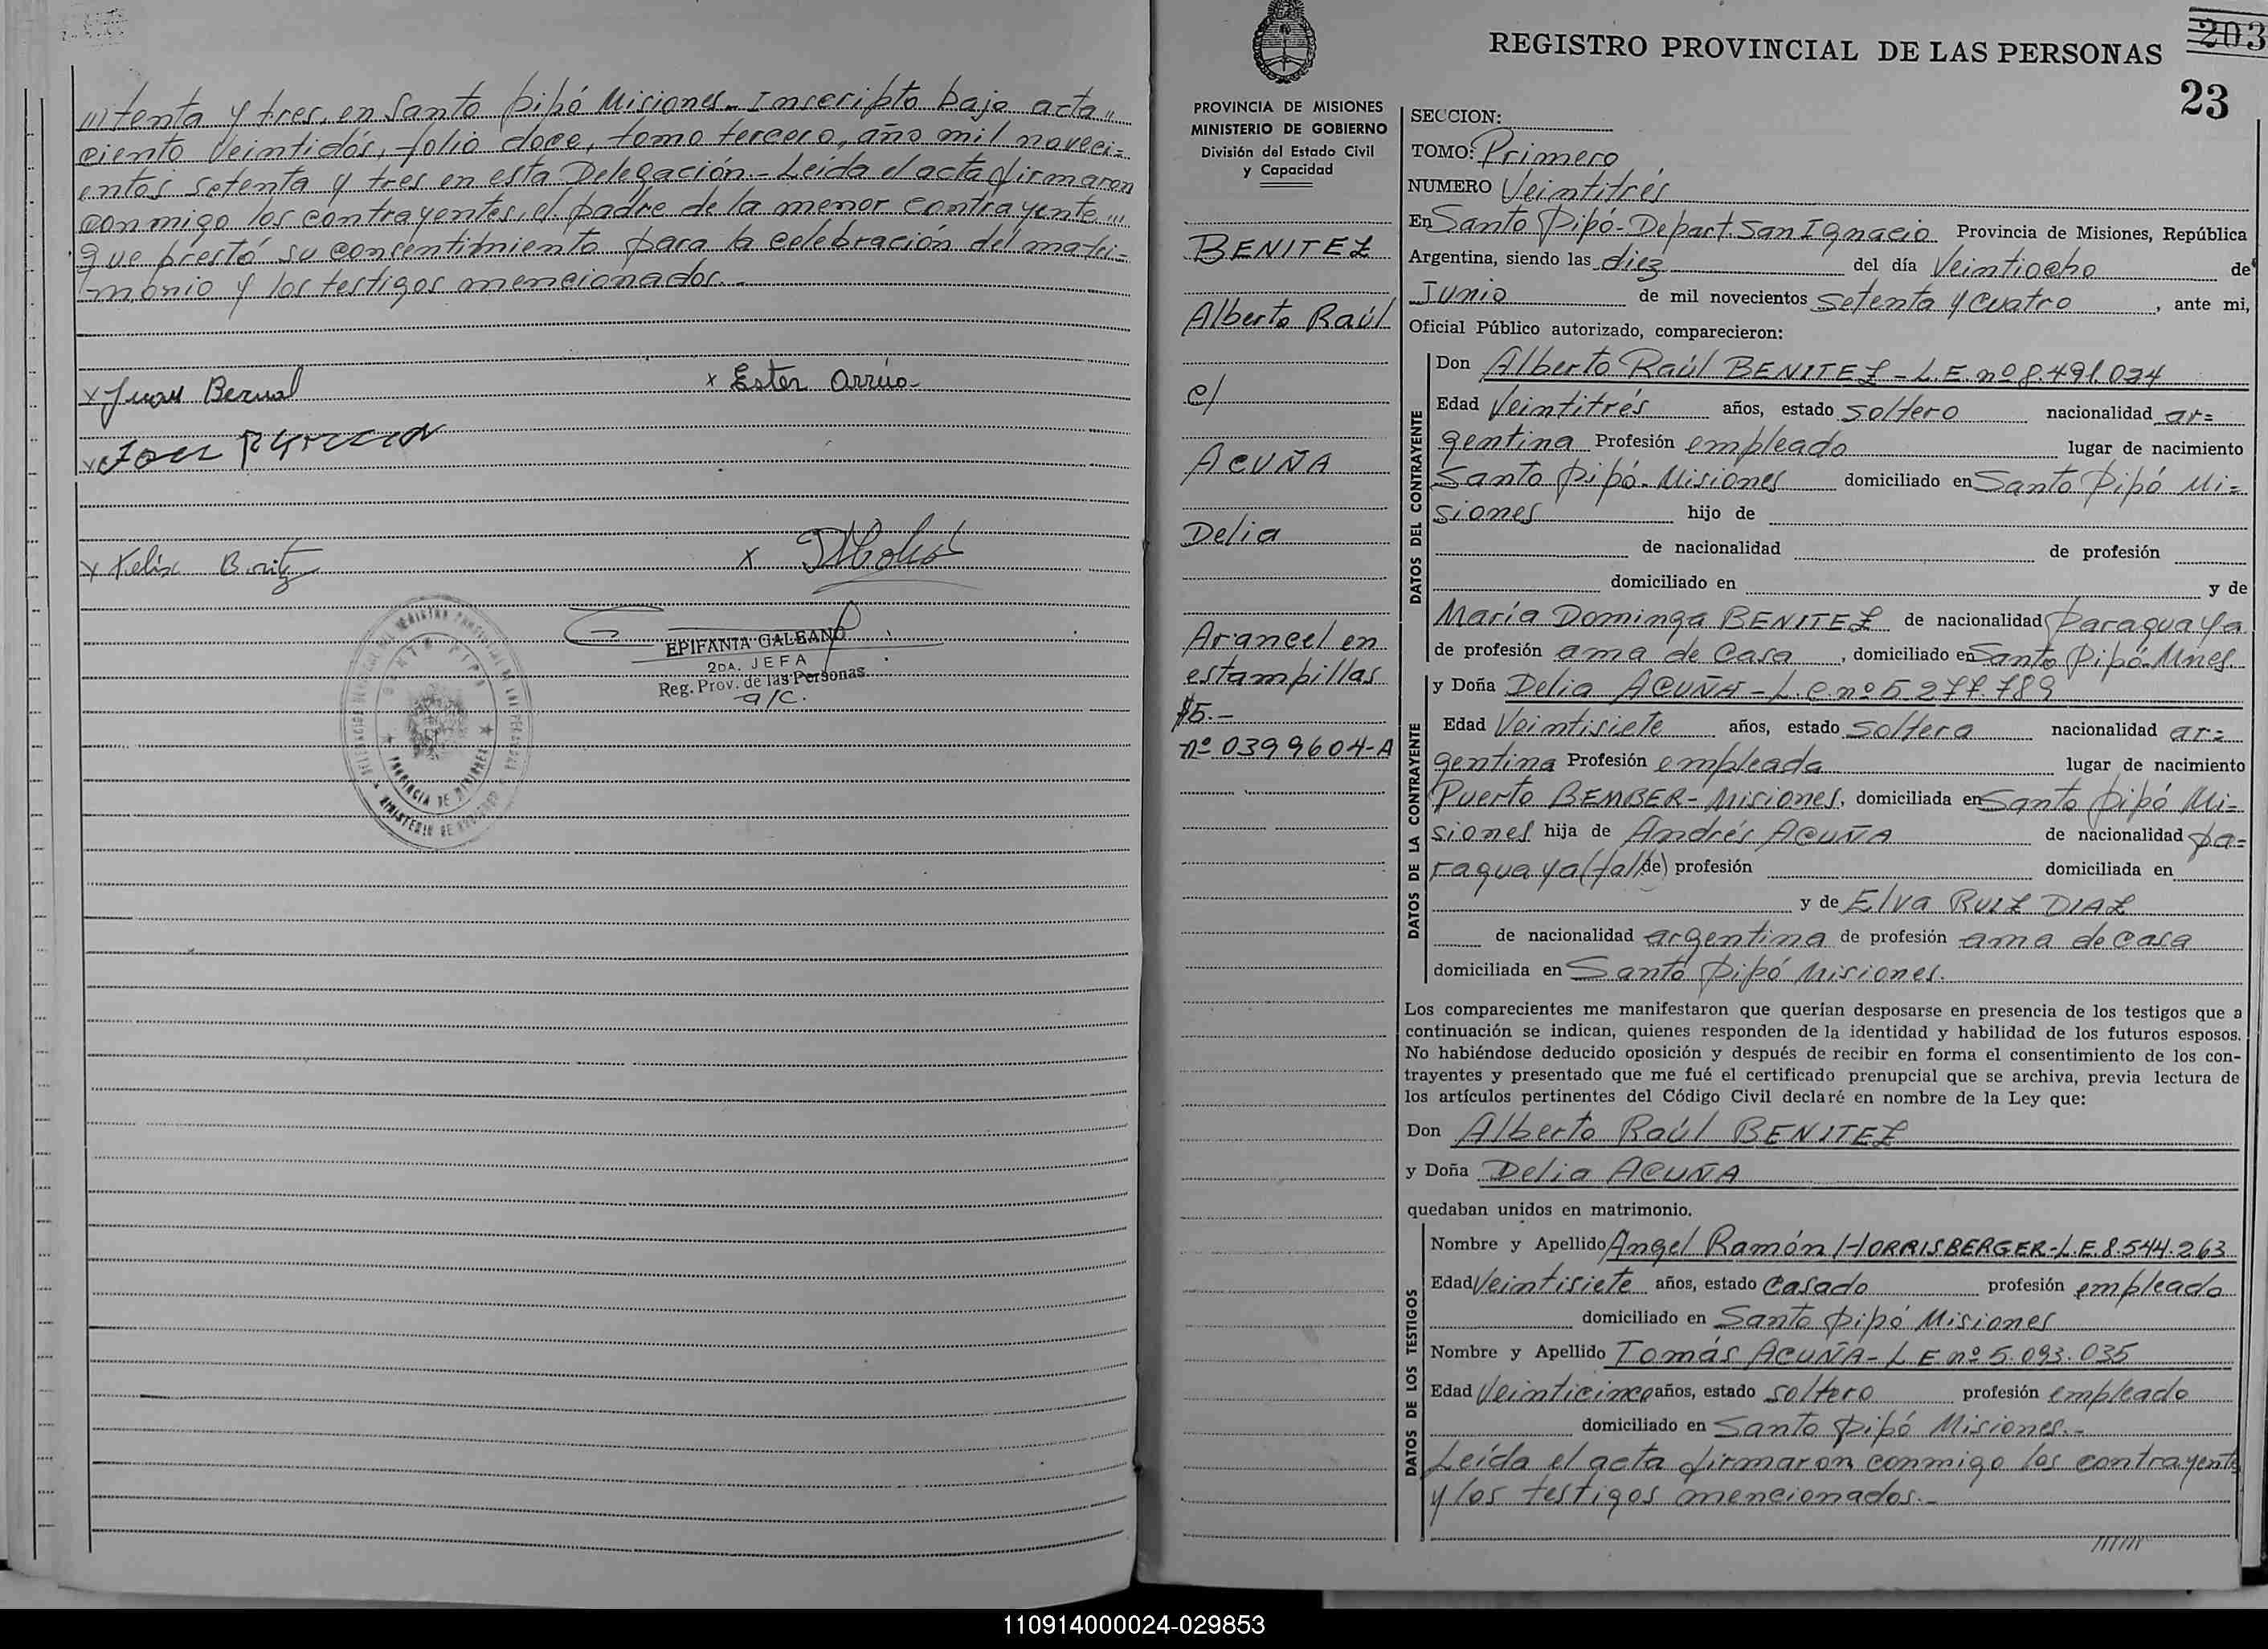 ///tenta y tres, en Santo Pipó Misiones.- Inscripto bajo acta "
ciento veintidós, folio doce, tomo tercero, año mil noveci=
entos setenta y tres en esta Delegación.- Leída el acta firmaron
conmigo los contrayentes, el padre de la menor contrayente '''
que prestó su consentimiento para la celebración del matri=
monio y los testigos mencionados.-
x Juan Bernal
x Ester Arrúa
x Felix Benitz
EPIFANIA GALEANO
2DA. JEFA
Reg. Prov. de las Personas
a/c.
PROVINCIA DE MISIONES
203
REGISTRO PROVINCIAL DE LAS PERSONAS
23
PROVINCIA DE MISIONES
MINISTERIO DE GOBIERNO
División del Estado Civil
y Capacidad
BENITEZ
Alberto Raúl
c/
ACUÑA
Delia
Arancel en
estampillas
$5.-
nº 0399604-A
SECCION:
TOMO: Primero
NUMERO Veintitrés
En Santo Pipó- Depart. San Ignacio Provincia de Misiones, República
Argentina, siendo las diez del día Veintiocho de
Junio de mil novecientos setenta y cuatro , ante mi,
Oficial Público autorizado, comparecieron:
DATOS DEL CONTRAYENTE
Don Alberto Raúl BENITEZ - L.E. nº 8.491.024
Edad Veintitrés años, estado soltero nacionalidad ar=
gentina Profesión empleado lugar de nacimiento
Santo Pipó- Misiones domiciliado en Santo Pipó Mi=
siones hijo de
de nacionalidad de profesión
domiciliado en y de
María Dominga BENITEZ de nacionalidad Paraguaya
de profesión ama de casa , domiciliado en Santo Pipó- Mnes.
DATOS DE LA CONTRAYENTE
y Doña Delia ACUÑA - L.C. nº 5.277.789
Edad Veintisiete años, estado soltera nacionalidad ar=
gentina Profesión empleada lugar de nacimiento
Puerto BEMBER- Misiones, domiciliada en Santo Pipó Mi=
siones hija de Andrés ACUÑA de nacionalidad pa=
raguaya (falle) profesión domiciliada en
y de Elva RUIZ DIAZ
de nacionalidad argentina de profesión ama de casa
domiciliada en Santo Pipó Misiones.
Los comparecientes me manifestaron que querían desposarse en presencia de los testigos que a
continuación se indican, quienes responden de la identidad y habilidad de los futuros esposos.
No habiéndose deducido oposición y después de recibir en forma el consentimiento de los con-
trayentes y presentado que me fué el certificado prenupcial que se archiva, previa lectura de
los artículos pertinentes del Código Civil declaré en nombre de la Ley que:
Don Alberto Raúl BENITEZ
y Doña Delia ACUÑA
quedaban unidos en matrimonio.
DATOS DE LOS TESTIGOS
Nombre y Apellido Angel Ramón HORRISBERGER-L.E. 8.544.263
Edad Veintisiete años, estado casado profesión empleado
domiciliado en Santo Pipó Misiones
Nombre y Apellido Tomás ACUÑA- L E nº 5.093.035
Edad Veinticinco años, estado soltero profesión empleado
domiciliado en Santo Pipó Misiones.-
Leída el acta firmaron conmigo los contrayente
y los testigos mencionados.-
//////
110914000024-029853